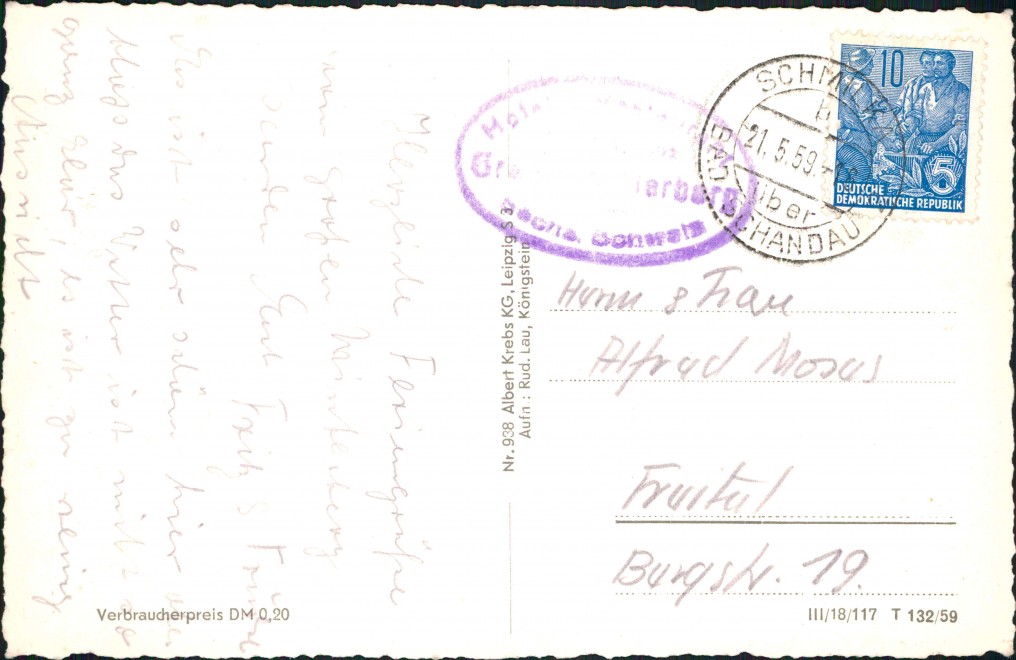 Herzliche Feriengrüße
vom großen Winterberg
senden Euch Fritz &
Es ist sehr schön hier
das Wetter ist nicht so
ganz klar, es ist zu
SCHMILKA
b
21.5.59
über
BAD SCHANDAU
10
5
DEUTSCHE
DEMOKRATISCHE REPUBLIK
Hotel
Gr. terberg
Sächs. Schweiz
Nr. 938 Albert Krebs KG, Leipzig S 3
Aufn.: Rud. Lau, Königstein
Herrn & Frau
Alfred Moses
Freital
Burgstr. 19.
Verbraucherpreis DM 0,20
III/18/117 T 132/59